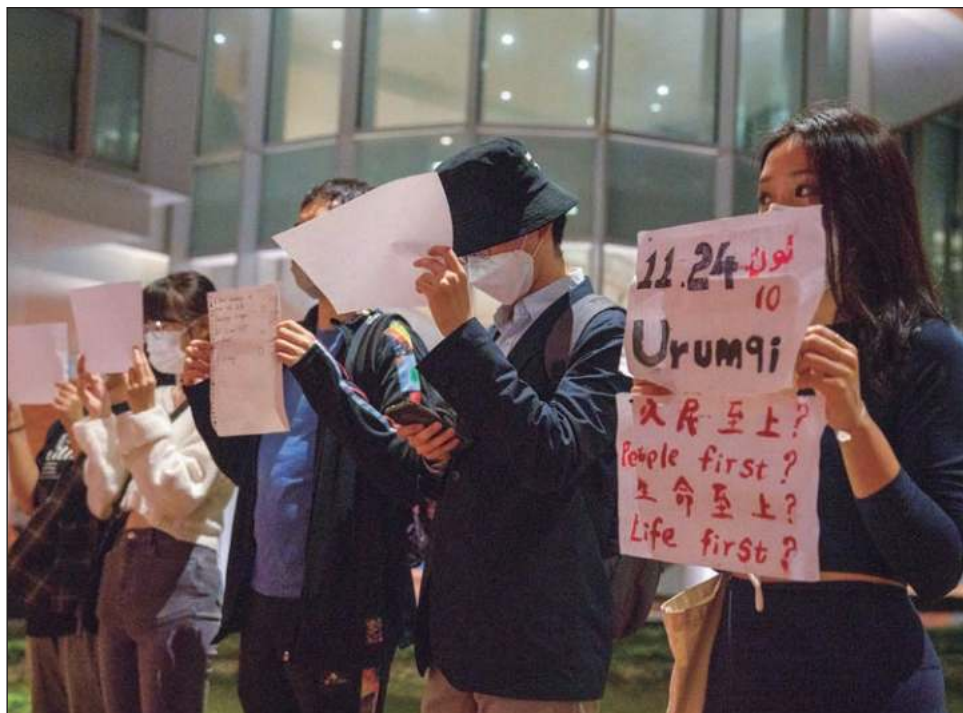 11.24 ئون
10
Urumqi
人民至上?
People first?
生命至上?
Life first?